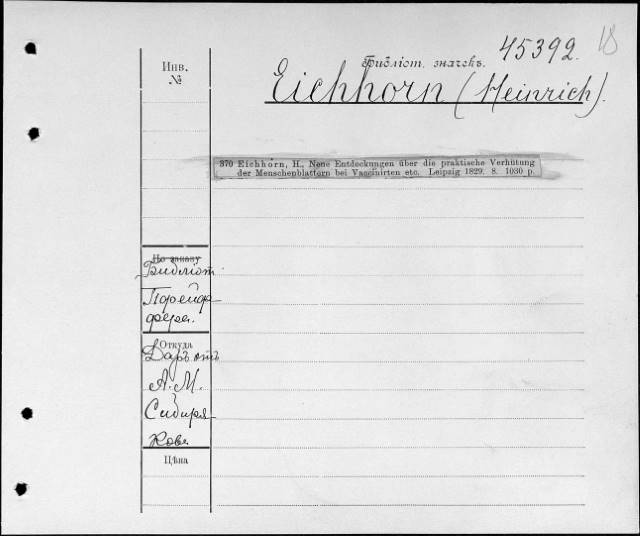 45392.
18
Библіот. значекъ.
Eichhorn (Heinrich).
Инв.
№
370 Eichhorn, H., Neue Entdeckungen über die praktische Verhütung
der Menschenblattern bei Vaccinirten etc. Leipzig 1829. 8. 1030 p.
По заказу
Библіот.
Пфейф-
фера.
Откуда
Даръ отъ
А. М.
Сибиря-
кова
Цѣна